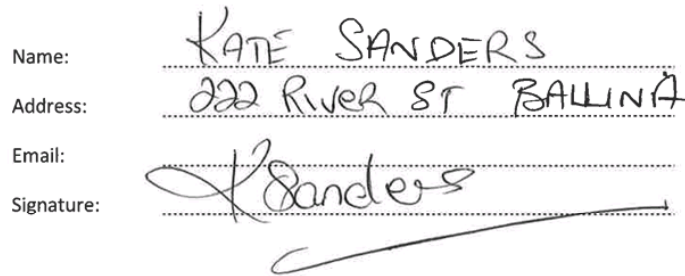 Name: KATE SANDERS
Address: 222 RIVER ST BALLINA
Email:
Signature: K Sanders